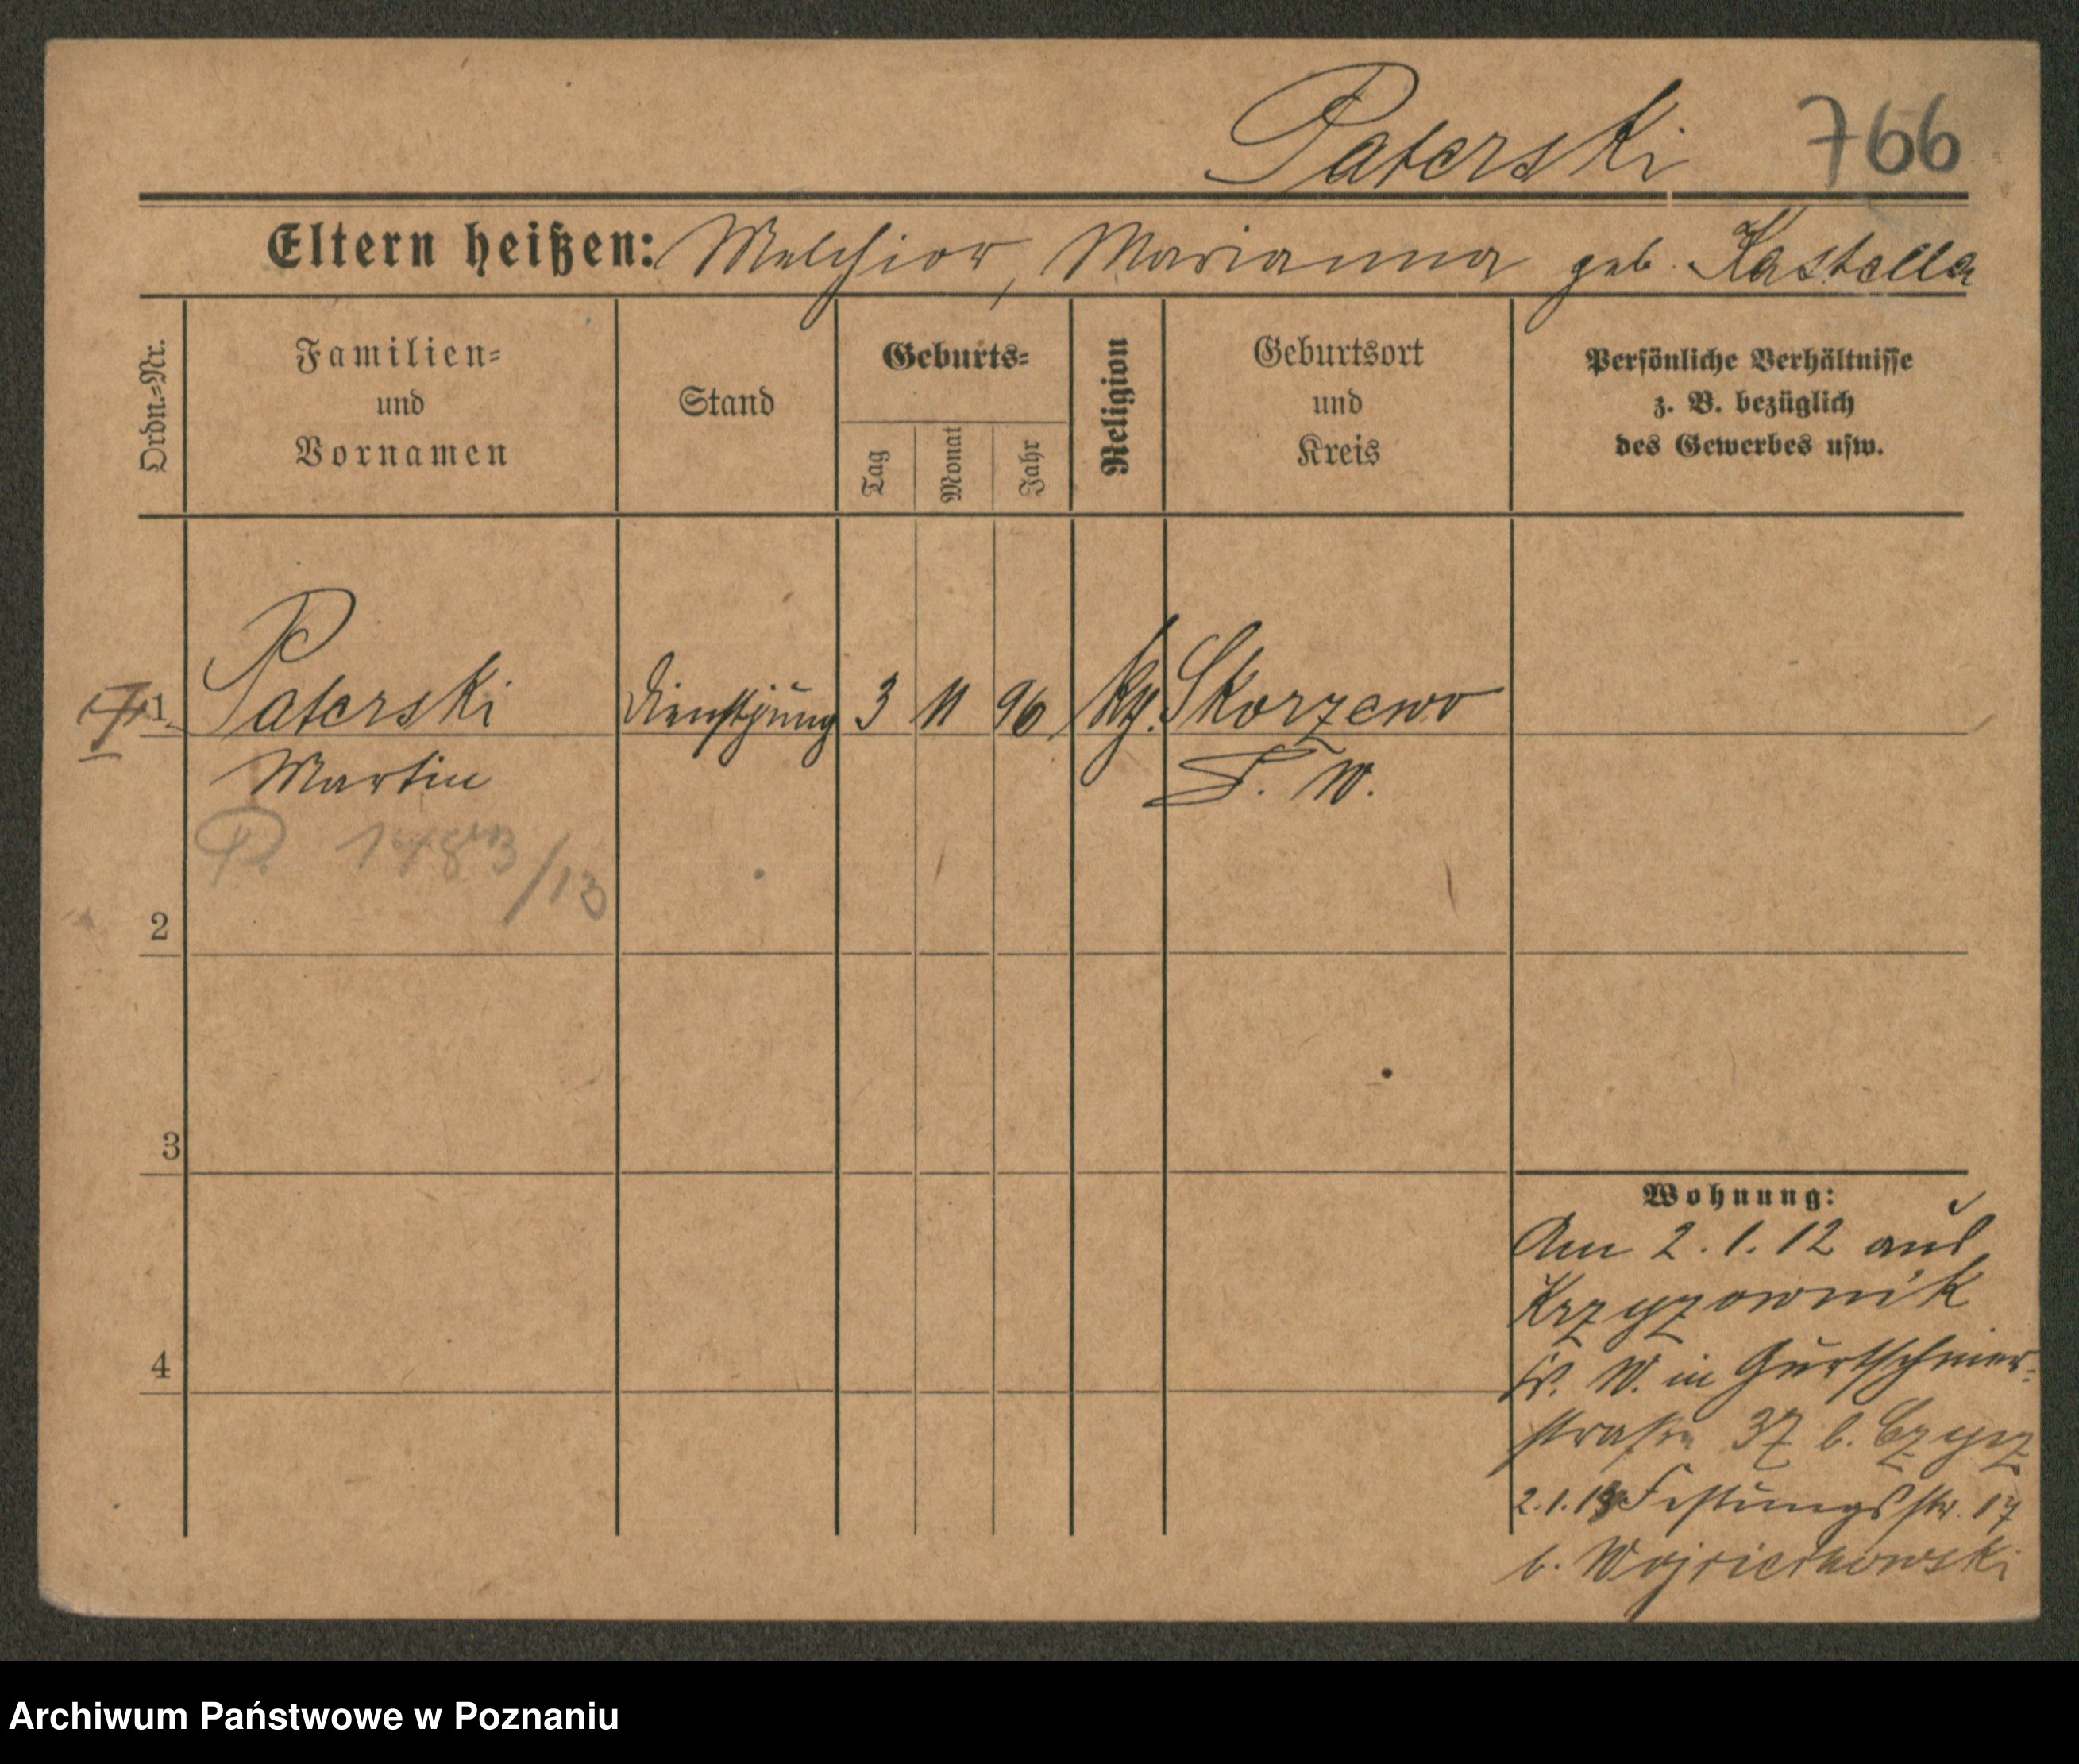 Paterski 766
Eltern heißen: Melchior, Marianna geb. Kastella
Ordn.=Nr.
Familien=
und
Vornamen
Stand
Geburts=
Tag
Monat
Jahr
Religion
Geburtsort
und
Kreis
Persönliche Verhältnisse
z. B. bezüglich
des Gewerbes usw.
1 Paterski Dienstjung 3 11 96 Skorzewo
Martin P. W.
P. /13
2
3
4
Wohnung:
Am 2.1.12 aus
Krzyzownik
W. in Gurtschiner=
straße 37 b. Czysz
2.1.13 Festungsstr. 17
b. Wojciechowski
Archiwum Państwowe w Poznaniu